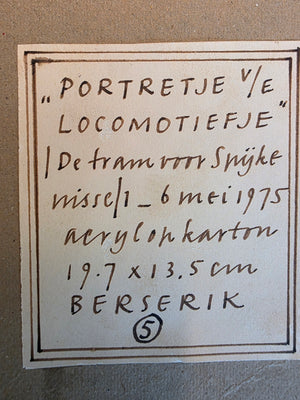 „PORTRETJE v/E
LOCOMOTIEFJE"
/De tram voor Spijke
nisse/1 _ 6 mei 1975
acryl op karton
19.7 x 13.5 cm
BERSERIK
5